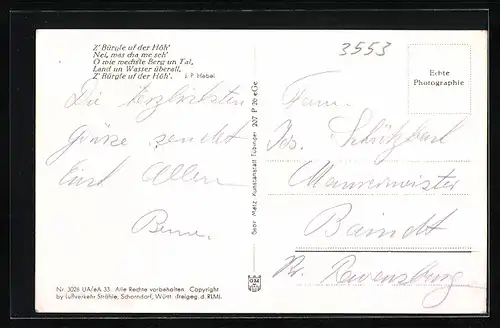 Z' Bürgle uf der Höh'
Nei, was cha me seh'
O wie wechsle Berg un Tal,
Land un Wasser überall,
Z' Bürgle uf der Höh'. J. P. Hebel
3553
Echte
Photographie
Die herzlichsten
Grüße sendet
Euch Allen
Fam.
Jos.
Maurermeister
Baindt
Kr. Ravensburg
Gebr. Metz Kunstanstalt Tübingen 207 P 20 eGe
Nr. 3026 UA/eA 33 Alle Rechte vorbehalten. Copyright
by Luftverkehr Strähle, Schorndorf, Württ. (freigeg. d. RLM).